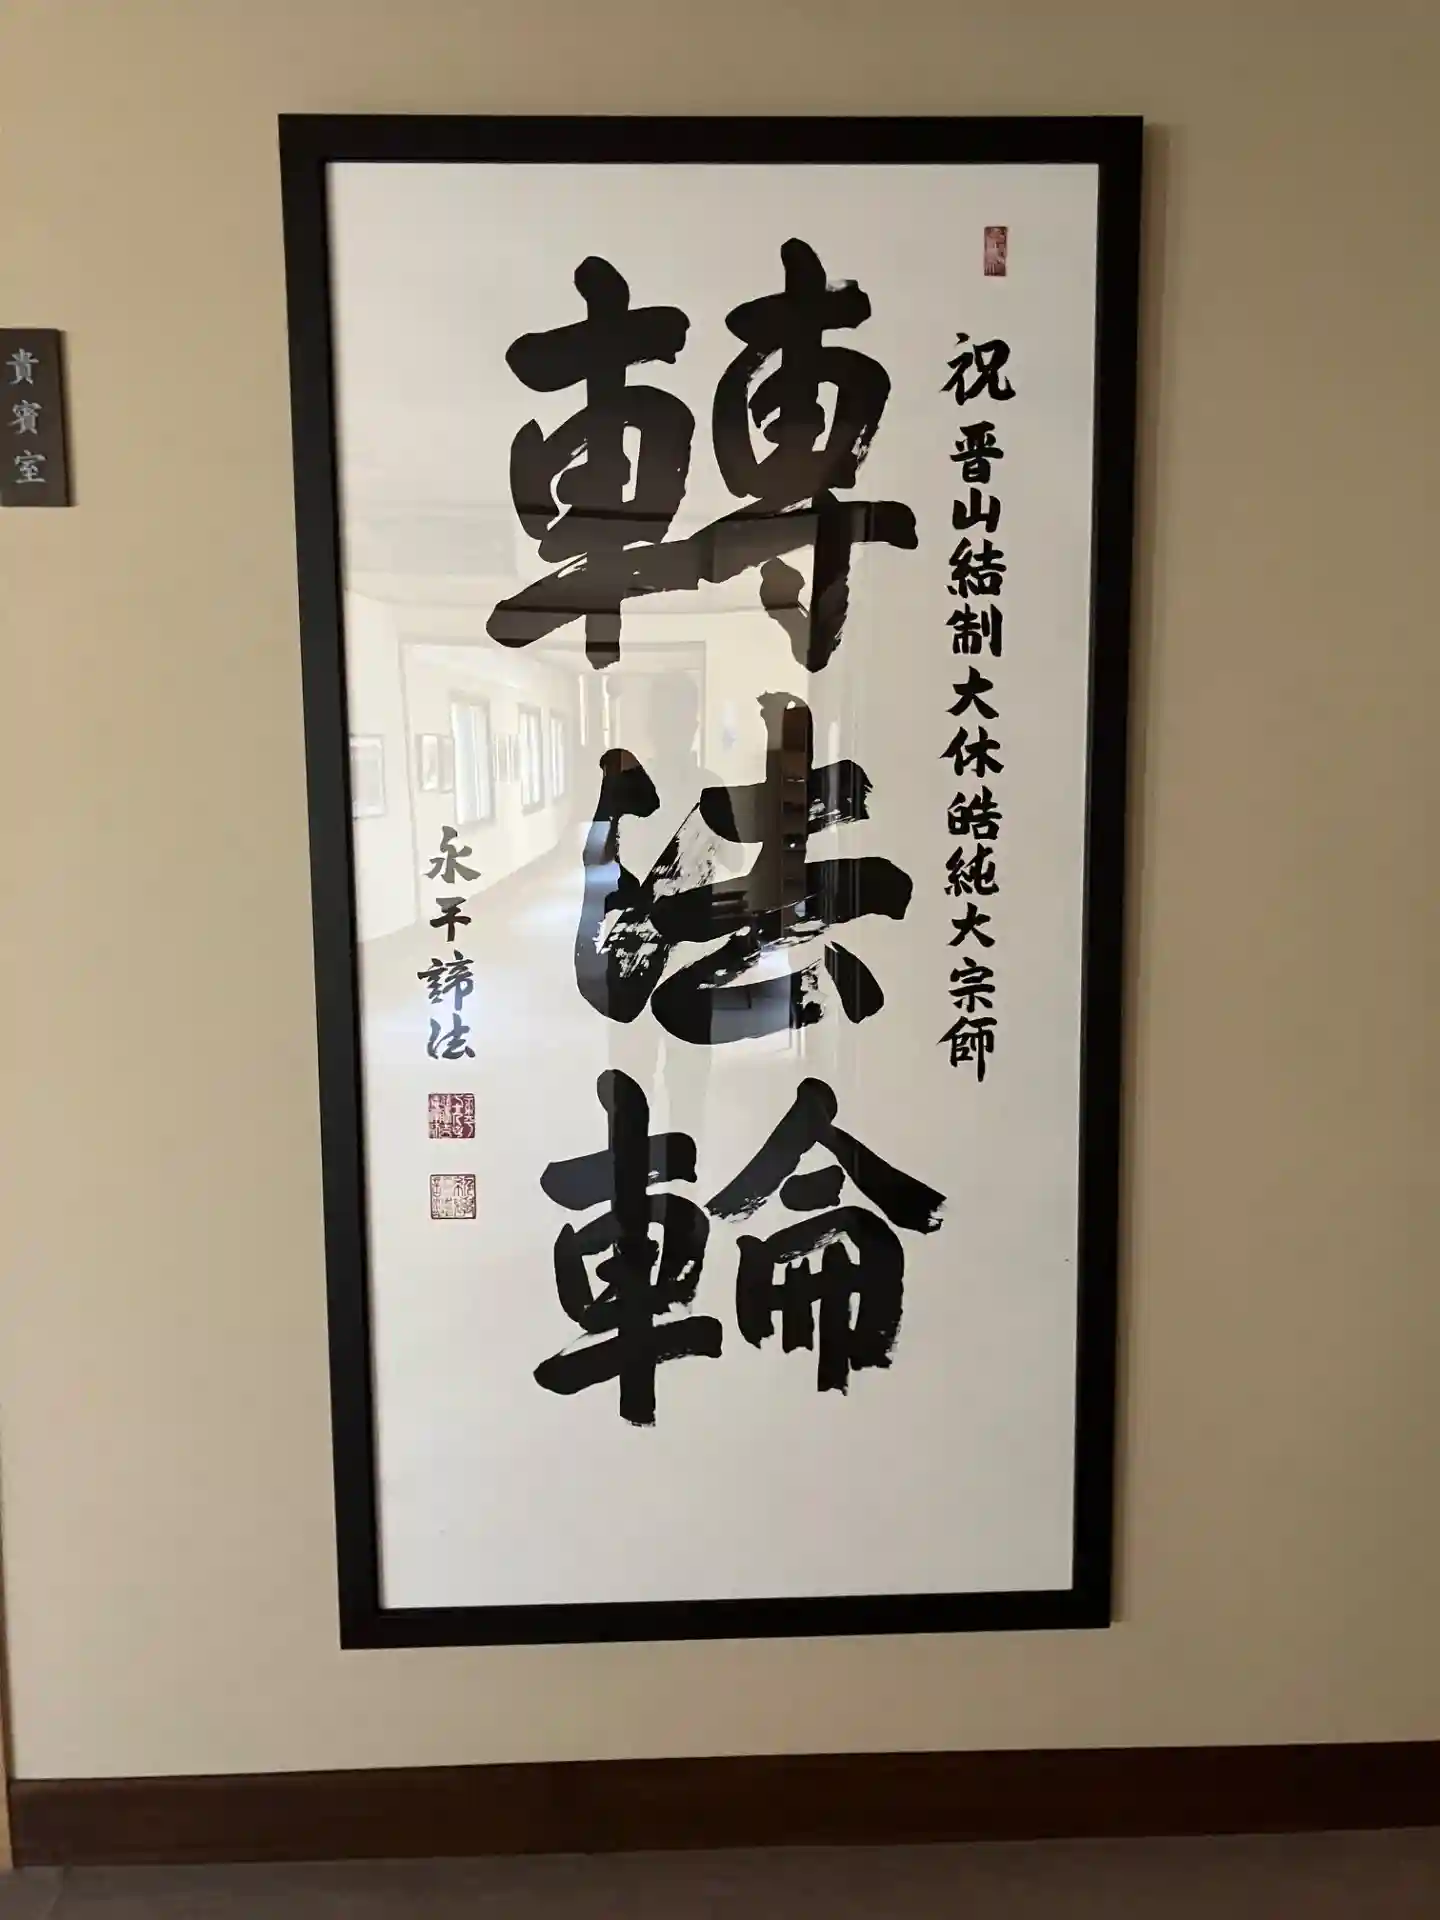 祝 晋山結制大休皓純大宗師
轉法輪
永平諦法
貴賓室